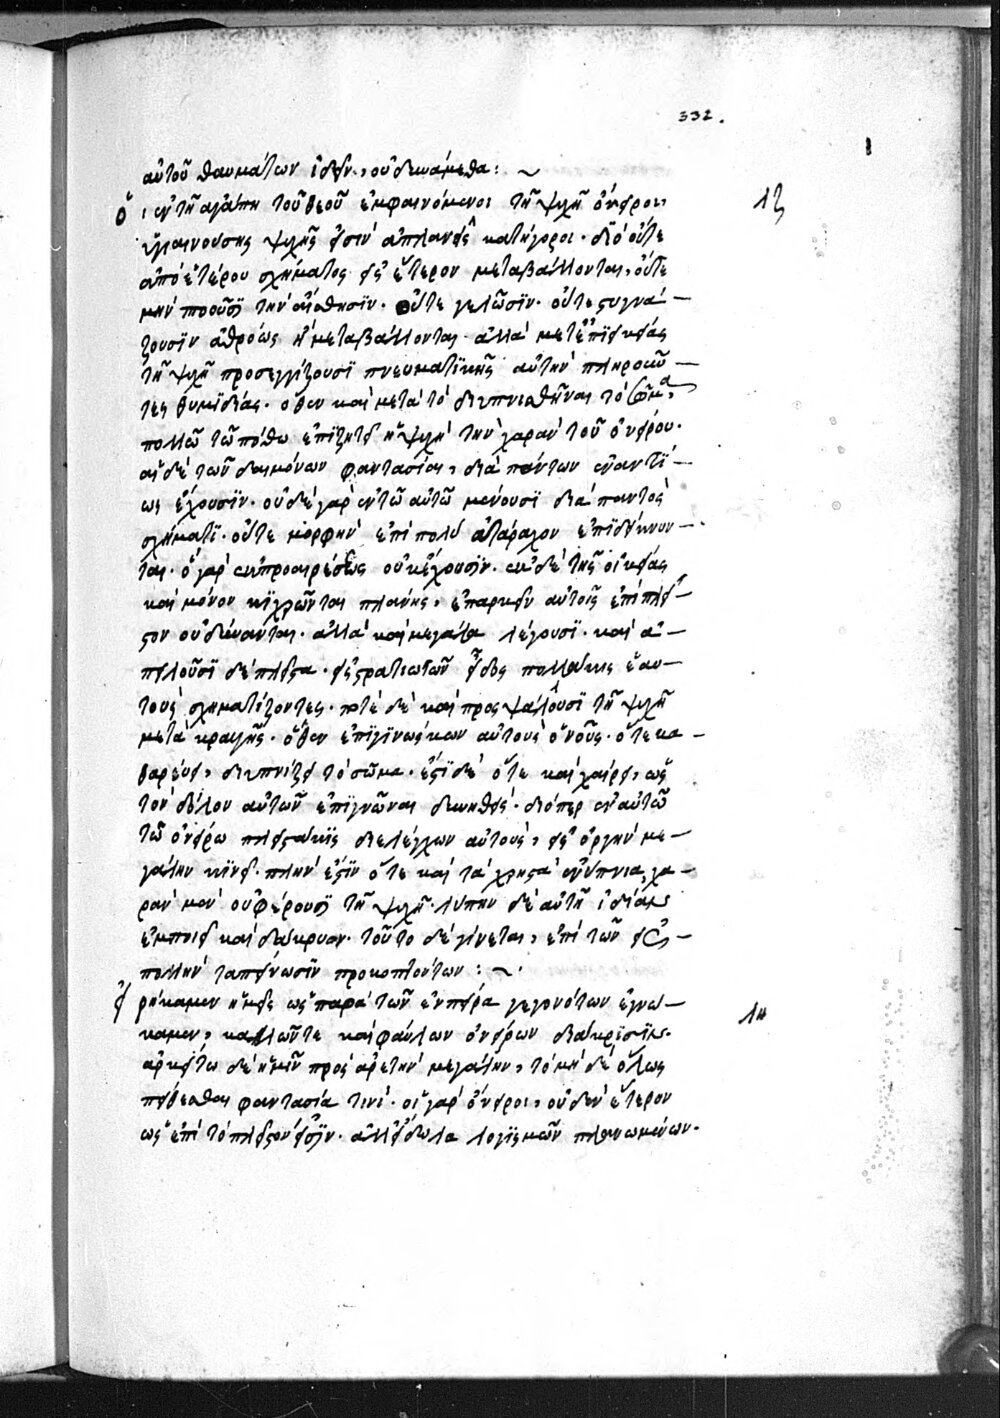 332.
αὐτοῦ θαυμάτων ἰδεῖν, οὐ δυνάμεθα : ~
13
Οἱ ἐν τῆ αγάπη τοῦ θεοῦ ἐμφαινόμενοι τῆ ψυχῆ ὄνειροι,
ὑγιαινούσης ψυχῆς εἰσιν ἀπλανεῖς κατήγοροι · διὸ οὔτε
ἀπὸ ἑτέρου σχήματος εἰς ἕτερον μεταβάλλονται, οὔτε
μὴν ποιοῦσι τὴν αἴσθησϊν · οὔτε γελῶσϊν · οὔτε στυγνά –
ζουσϊν ἀθρόως ἢ μεταβάλλονται ἀλλὰ μετ ἐπϊεικείας
τῆ ψυχῆ προσεγγίζουσϊ πνευματϊκῆς αὐτὴν πληροῦν –
τες θυμϊδίας · ὅθεν καὶ μετὰ τὸ διυπνισθῆναι τὸ σῶμα,
πολλῶ τῶ πόθω ἐπϊζητεῖ ἡ ψυχὴ τὴν χαρὰν τοῦ ὀνείρου ·
αἱ δὲ τῶν δαιμόνων φαντασίαι, διὰ πάντων ἐναντϊ –
ως ἔχουσϊν · οὐδὲ γὰρ ἐν τῶ αὐτῶ μένουσϊ διὰ παντὸς
σχήματϊ · οὔτε μορφὴν ἐπὶ πολὺ ἀτάραχον ἐπϊδείκνυν –
ται · ὃ γὰρ ἐκ προαιρέσεως οὐκ ἔχουσϊν · ἐκ δὲ τῆς οἰκείας
καὶ μόνον κϊχρῶνται πλάνης, ἐπαρκεῖν αὐτοῖς ἐπὶ πλεῖ –
στον οὐ δύναται · ἀλλὰ καὶ μεγάλα λέγουσϊ · καὶ ἀ –
πειλοῦσϊ δὲ πλεῖστα · εἰς στρατιωτῶν εἶδος πολλάκις ἑαυ –
τοὺς σχηματίζοντες · ποτὲ δὲ καὶ προσψάλλουσϊ τῆ ψυχῆ
μετὰ κραυγῆς · ὅθεν ἐπϊγϊνώσκων αὐτοὺς ὁ νοῦς · ὅτε κα –
θαρεύει, διυπνίζει τὸ σῶμα · ἔστϊ δὲ ὅτε καὶ χαίρει, ὡς
τὸν δόλον αὐτῶν ἐπϊγνῶναι δυνηθείς · διόπερ ἐν αὐτῶ
τῶ ὀνείρω πλειστάκϊς διελέγχων αὐτοὺς, εἰς ὀργὴν με –
γάλην κϊνεῖ · πλὴν ἔστϊν ὅτε καὶ τὰ χρηστὰ ἐνύπνια, χα –
ρὰν μὲν οὐ φέρουσϊ τῆ ψυχῆ · λύπην δὲ αὐτῆ ἡδεῖαν
ἐμποιεῖ καὶ δάκρυον · τοῦτο δὲ γίνεται, ἐπὶ τῶν εἰς –
πολλὴν ταπείνωσϊν προκοπτόντων : ~ ·
14
Εἰρήκαμεν ἡμεῖς ὡς παρὰ τῶν ἐν πείρα γεγονότων ἐγνώ –
καμεν, καλῶν τε καὶ φαύλων ὀνείρων διάκρϊσϊν ·
ἀρκείτω δὲ ἡμῖν πρὸς ἀρετὴν μεγάλην, τὸ μὴ δὲ ὅλως
πείθεσθαι φαντασία τινὶ · οἱ γὰρ ὄνειροι, οὐδὲν ἕτερον
ὡς ἐπὶ τὸ πλεῖστον εἰσϊν · ἀλλ εἴδωλα λογϊσμῶν πλανωμένων ·